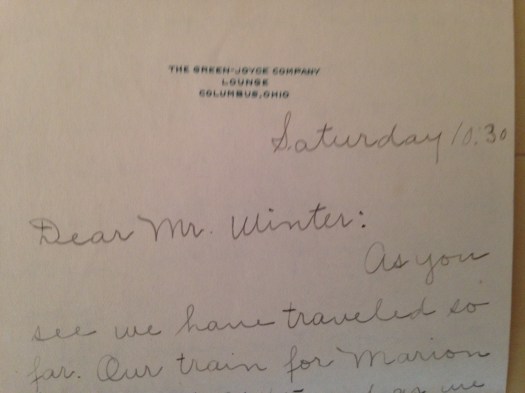 THE GREEN-JOYCE COMPANY
LOUNGE
COLUMBUS, OHIO
Saturday 10:30
Dear Mr. Winter:
As you
see we have traveled so
far. Our train for Marion
as we